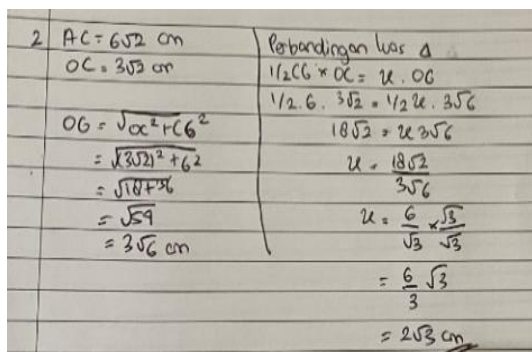 2 AC = 6√2 cm
OC = 3√2 cm
OG = √OC² + CG²
= √(3√2)² + 6²
= √18 + 36
= √54
= 3√6 cm
Perbandingan luas Δ
1/2 CG × OC = x . OG
1/2 . 6 . 3√2 = 1/2 x . 3√6
18√2 = x 3√6
x = 18√2 / 3√6
x = 6/√3 × √3/√3
= 6/3 √3
= 2√3 cm